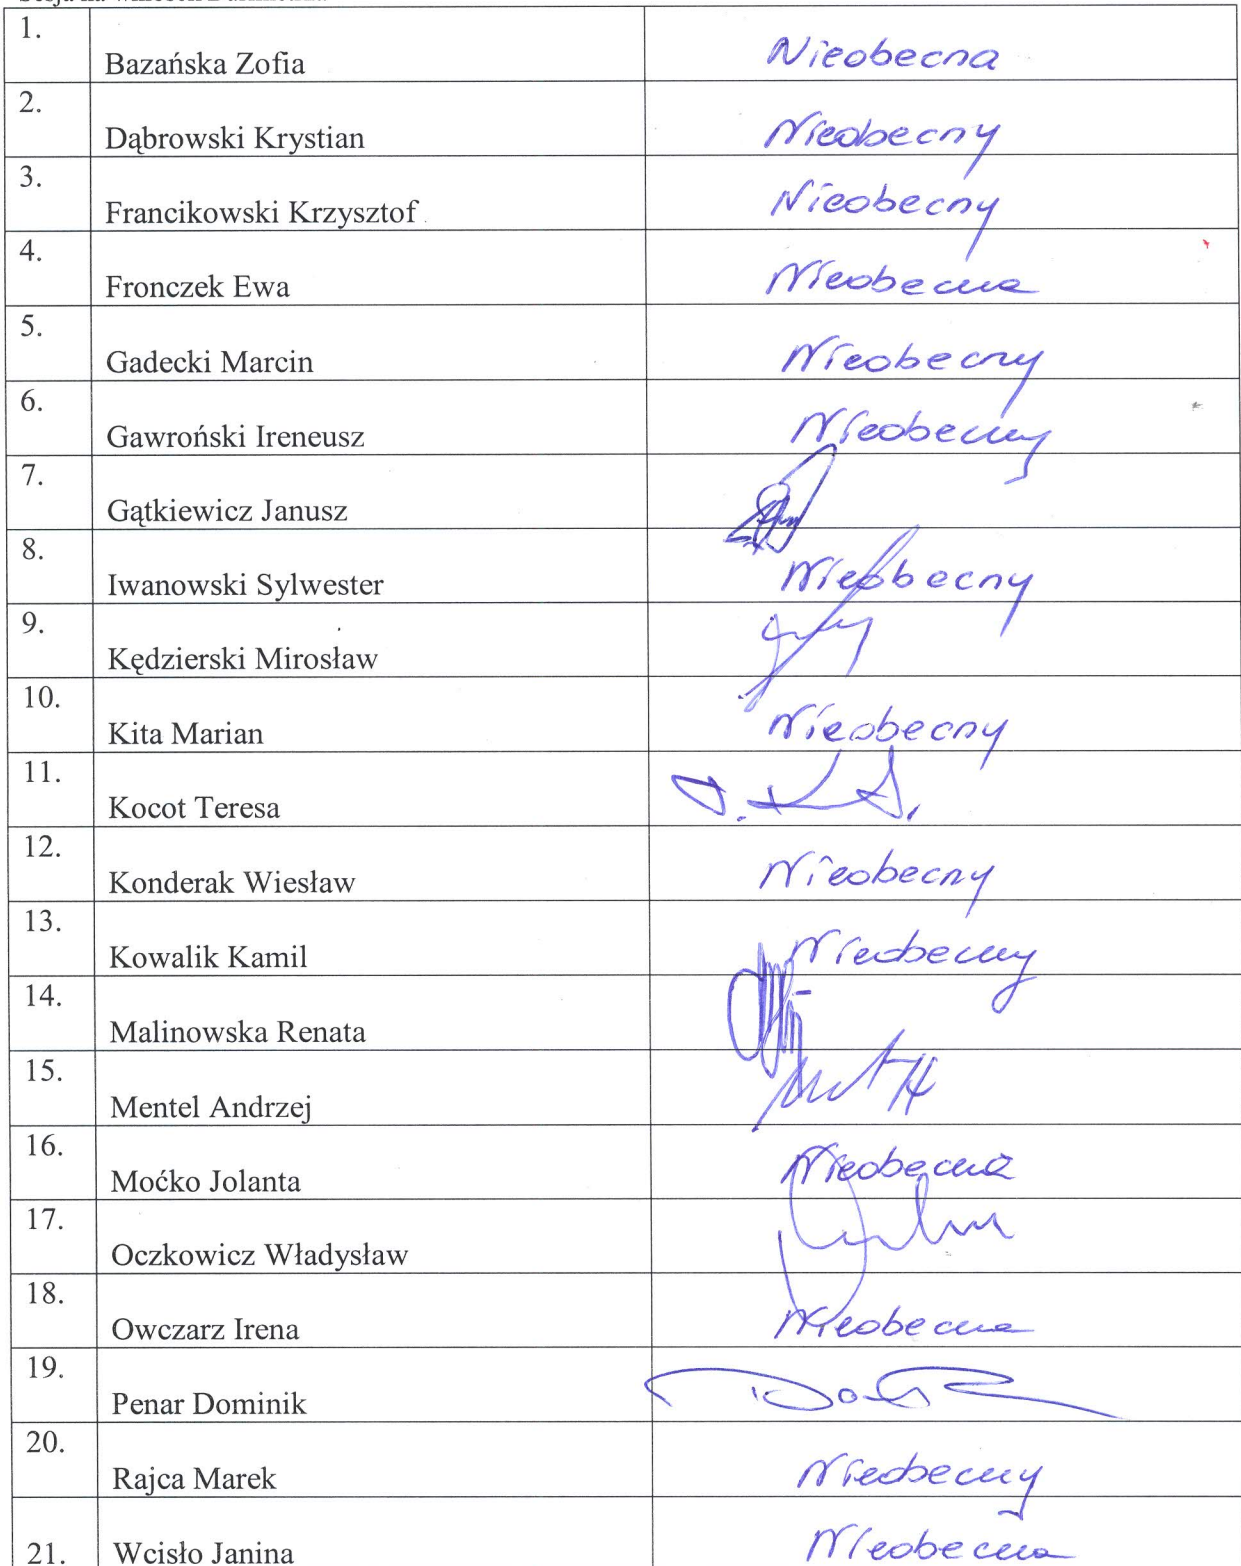 1. Bazańska Zofia Nieobecna
2. Dąbrowski Krystian Nieobecny
3. Francikowski Krzysztof Nieobecny
4. Fronczek Ewa Nieobecna
5. Gadecki Marcin Nieobecny
6. Gawroński Ireneusz Nieobecny
7. Gątkiewicz Janusz
8. Iwanowski Sylwester Nieobecny
9. Kędzierski Mirosław
10. Kita Marian Nieobecny
11. Kocot Teresa
12. Konderak Wiesław Nieobecny
13. Kowalik Kamil Nieobecny
14. Malinowska Renata
15. Mentel Andrzej
16. Moćko Jolanta Nieobecna
17. Oczkowicz Władysław
18. Owczarz Irena Nieobecna
19. Penar Dominik
20. Rajca Marek Nieobecny
21. Wcisło Janina Nieobecna